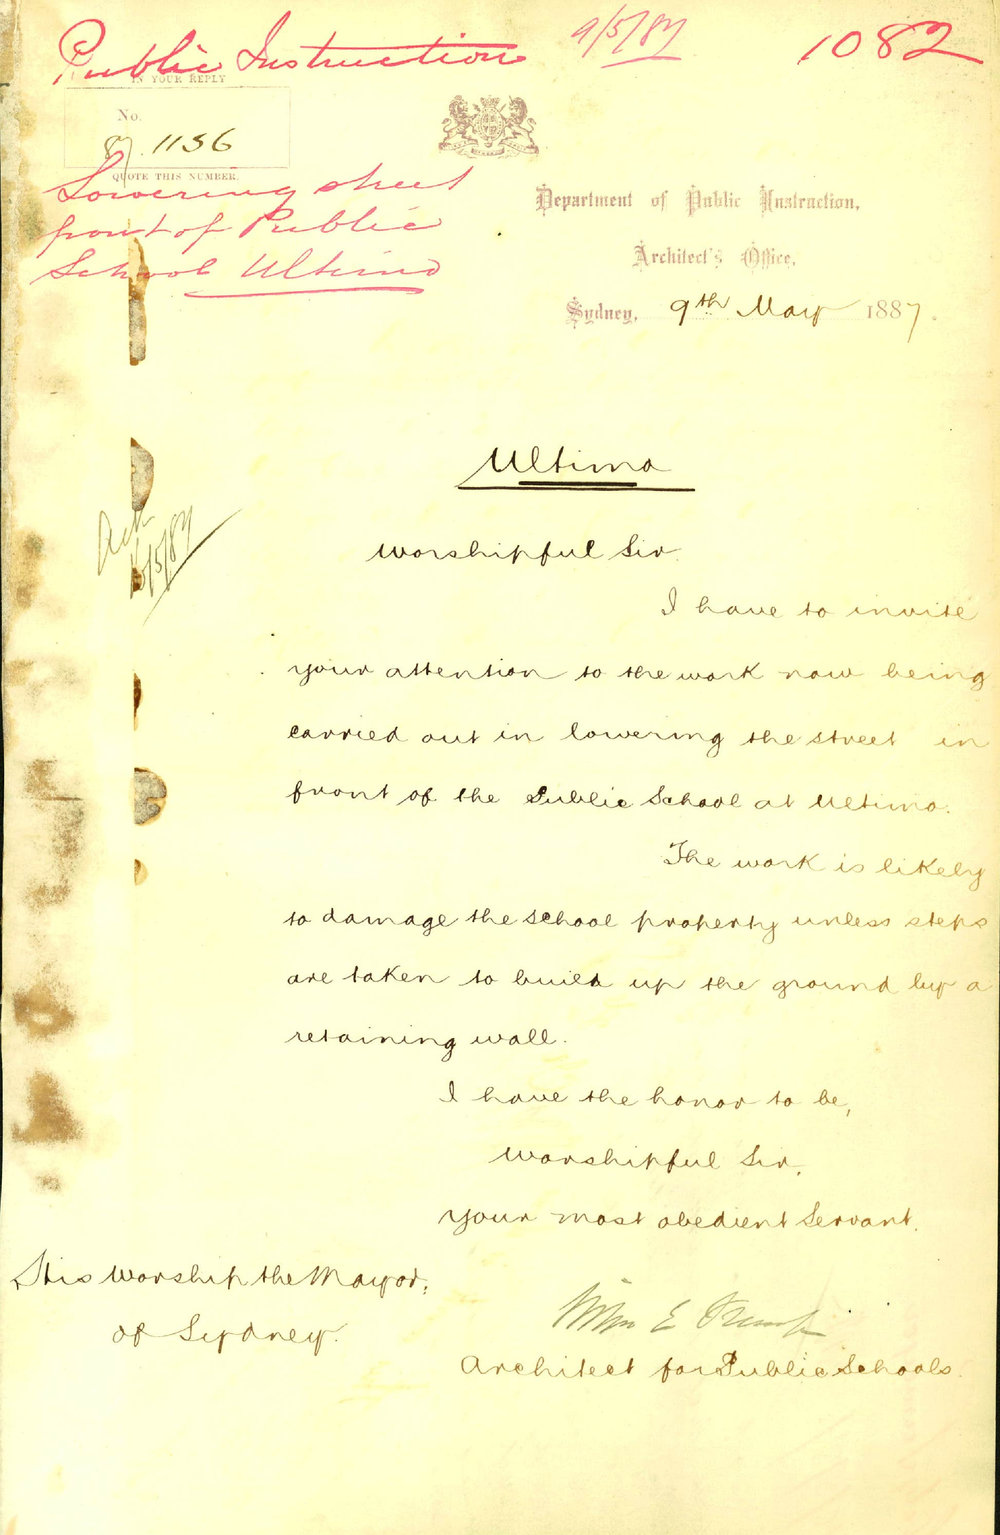 Public Instruction
9/5/87
1082
IN YOUR REPLY
No.
87. 1136
QUOTE THIS NUMBER.
Lowering street
front of Public
School Ultimo
Department of Public Instruction,
Architect's Office,
Sydney, 9th May 1887.
Ultimo
Ack
/5/87
Worshipful Sir.
I have to invite
your attention to the work now being
carried out in lowering the street in
front of the Public School at Ultimo.
The work is likely
to damage the school property unless steps
are taken to build up the ground by a
retaining wall.
I have the honor to be,
Worshipful Sir,
your most obedient Servant.
His Worship the Mayor,
of Sydney.
Wm E Kemp
Architect for Public Schools.